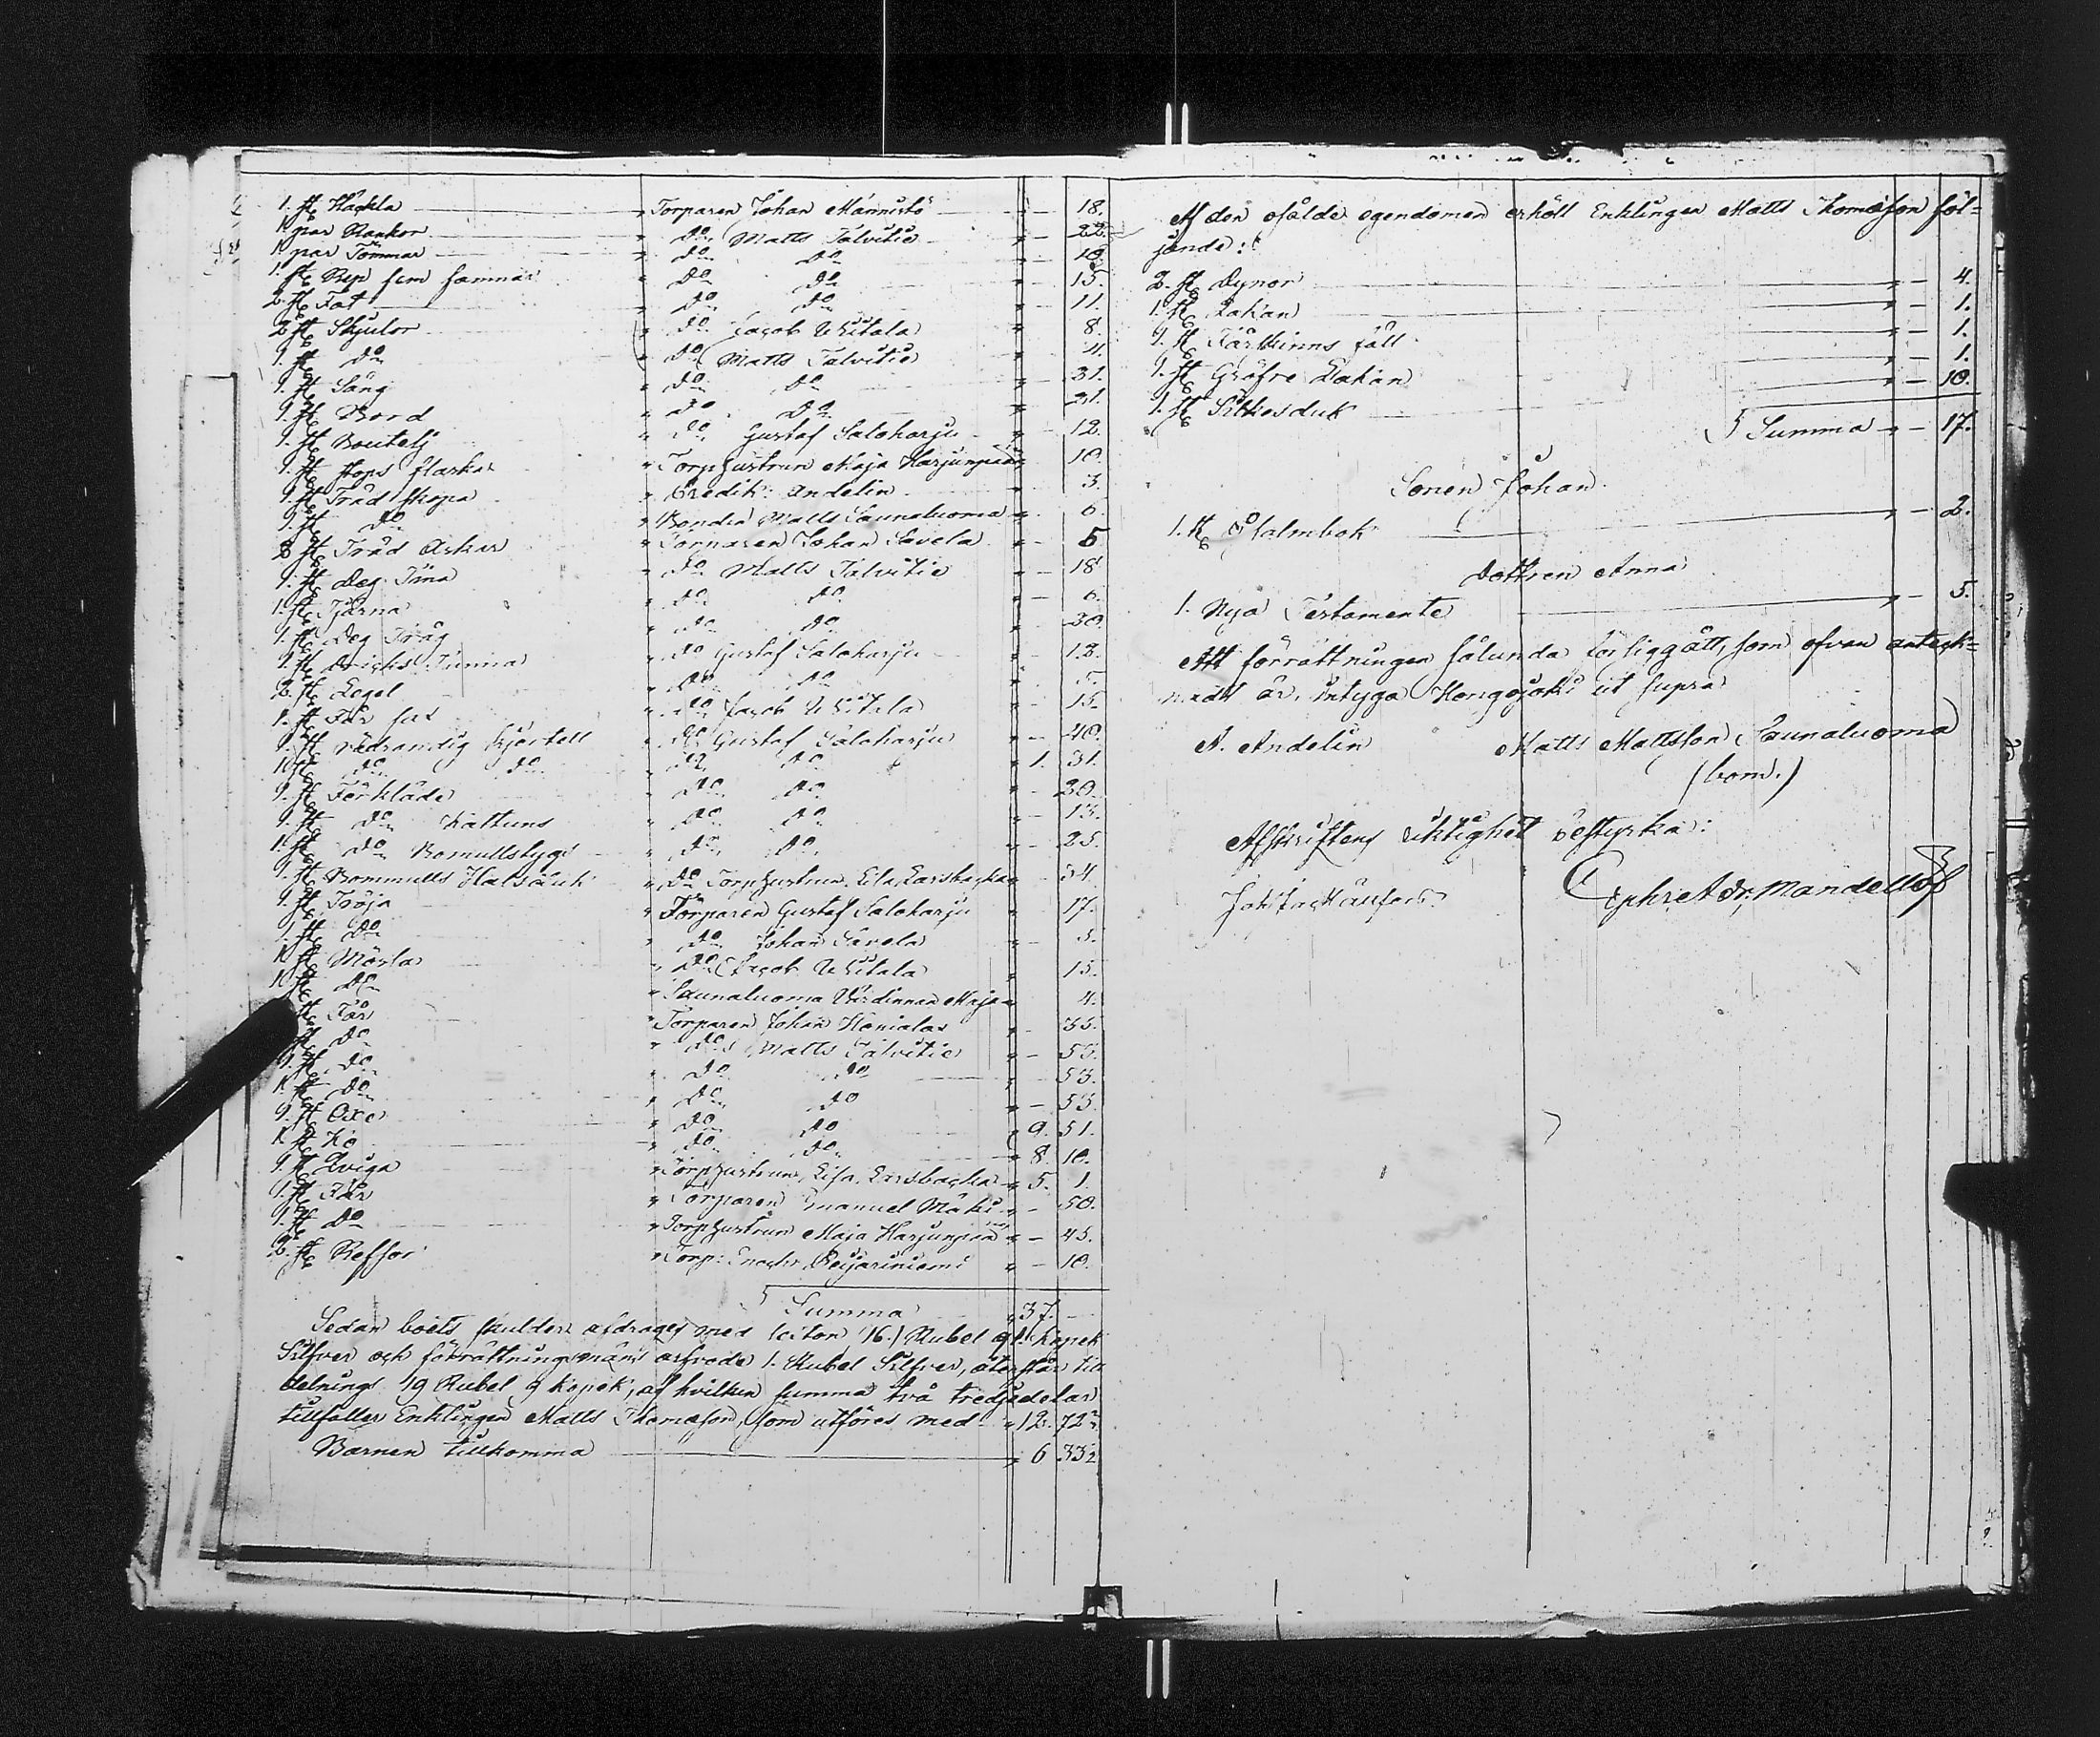 1. st Häckla " Torparen Johan Mannistö " — 18.
1 par Rankor " Do Matts Talvitie " — 22.
1 par Tömmar " Do Do " — 10
1. st Rep fem famnar " Do Do " — 15.
2. st Fat " Do Do " — 11.
2 st Skjulor " Do Jacob Uitala " 8.
1. st Do " Do Matts Talvitie " 4.
1. st Säng " Do Do " — 31.
1. st Bord " Do Do " 21.
1. st Boutelj " Do Gustaf Saloharju " — 12.
1. st Stops flaska " Torp hustrun Maja Harjunpää " 10.
1. st Träd skopa " Credit: Andelin " 3.
1. st Do " Bonden Matts Saunaluoma " 6.
2 st Träd Askar " Torparen Johan Savela " — 5
1. st Deg Tina " Do Matts Talvitie " — 18
1. st Tjärna " Do Do " — 6.
1. st Deg Tråg " Do Do " 30.
1. st Dricks Tunna " Do Gustaf Saloharju " — 12.
2. st Legel " Do Do " 5.
1. st Får sax " Do Jacob Uitala " — 15.
1. st rödrandig kjortell " Do Gustaf Saloharju " — 40.
1. st Do Do " Do Do " 1. 31.
1. st Förkläde " Do Do " — 20.
1. st Do Kattuns " Do Do " — 13.
1. st Do Bomullstygs " Do Do " — 25.
1. st Bommulls Halsduk " Do Torp hustrun 54.
1. st Tröja " Torparen Gustaf Saloharju " 17.
1. st Do " Do Johan Savela " — 5.
1 st Mössa " Do Jacob Uitala " 15.
1 st Do " Saunaluoma Värdinnan Maja " 4.
st Får " Torparen Johan " — 35.
st Do " Do Matts Talvitie " — 53.
1. st Do " Do Do " 53.
1. st Do " Do Do " — 53.
1. st Oxe " Do Do " 9. 51.
1. st Ko " Do Do " 8. 10.
1. st Qviga " Torp hustrun Lisa " 5. 1.
1. st Får " Torparen Emanuel Mäki " — 50.
1. st Do " Torp hustrun Maja Harjunpää " — 45.
2. st Refsor " Torp: " — 10.
Summa " 37. —
Sedan boets skulder afdrages med sexton /16./ Rubel 91. kopek
Silfver och förrättningsmäns arfvode 1. Rubel Silfver, återstår till
delning 19 Rubel 9 kopek, af hvilken summa två tredjedelar
tillfaller Enklingen Matts Thomasson, som utföres med " 12. 72⅔
Barnen tillkomma " 6 33½
Af den osålde egendomen erhöll Enklingen Matts Thomasson föl=
jande:
2. st Dynor " — 4.
1. st Lakan " — 1.
1. st Fårskinns fäll " — 1.
1. st Gröfre Lakan " — 1.
1. st Silkesduk " — 10.
Summa " — 17.
Sonen Johan.
1. st Psalmbok " — 2.
Dottren Anna
1. Nya Testamente " — 5.
Att förrättningen sålunda tillgått, som ofvan anteck=
nadt är, intyga Kongojoki ut supra
A. Andelin Matts Mattsson Saunaluoma
(bom.)
Afskriftens riktighet bestyrka: